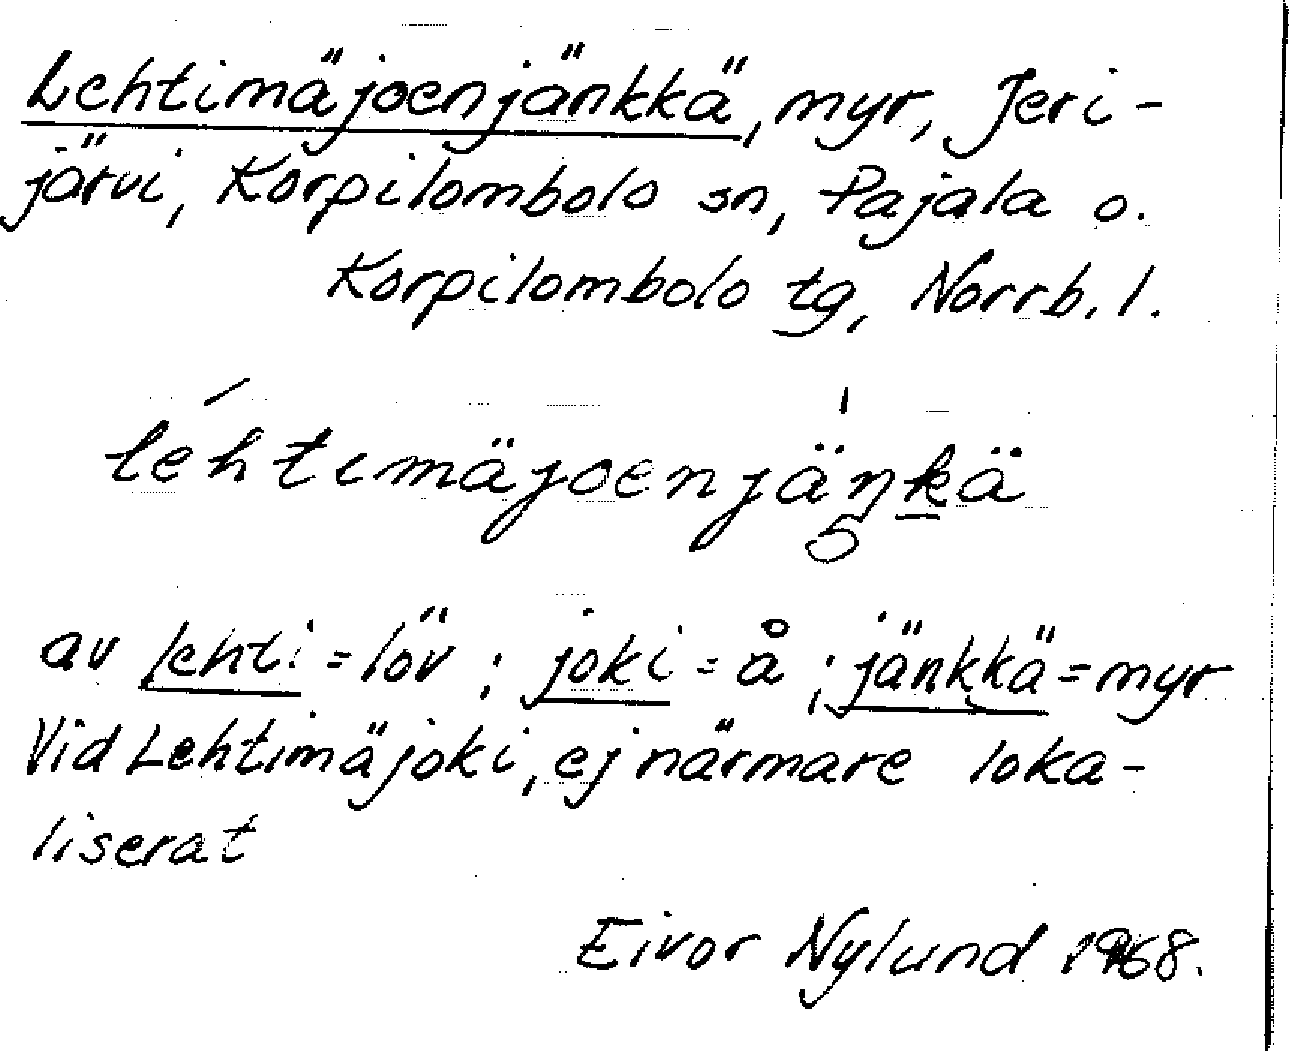 Lehtimäjoenjänkkä, myr, Jeri-
järvi, Korpilombolo sn, Pajala o.
Korpilombolo tg, Norrb. l.
lehtimäjoenjäŋkä
av lehti = löv ; joki = å ; jänkkä = myr
Vid Lehtimäjoki, ej närmare loka-
liserat
Eivor Nylund 1968.